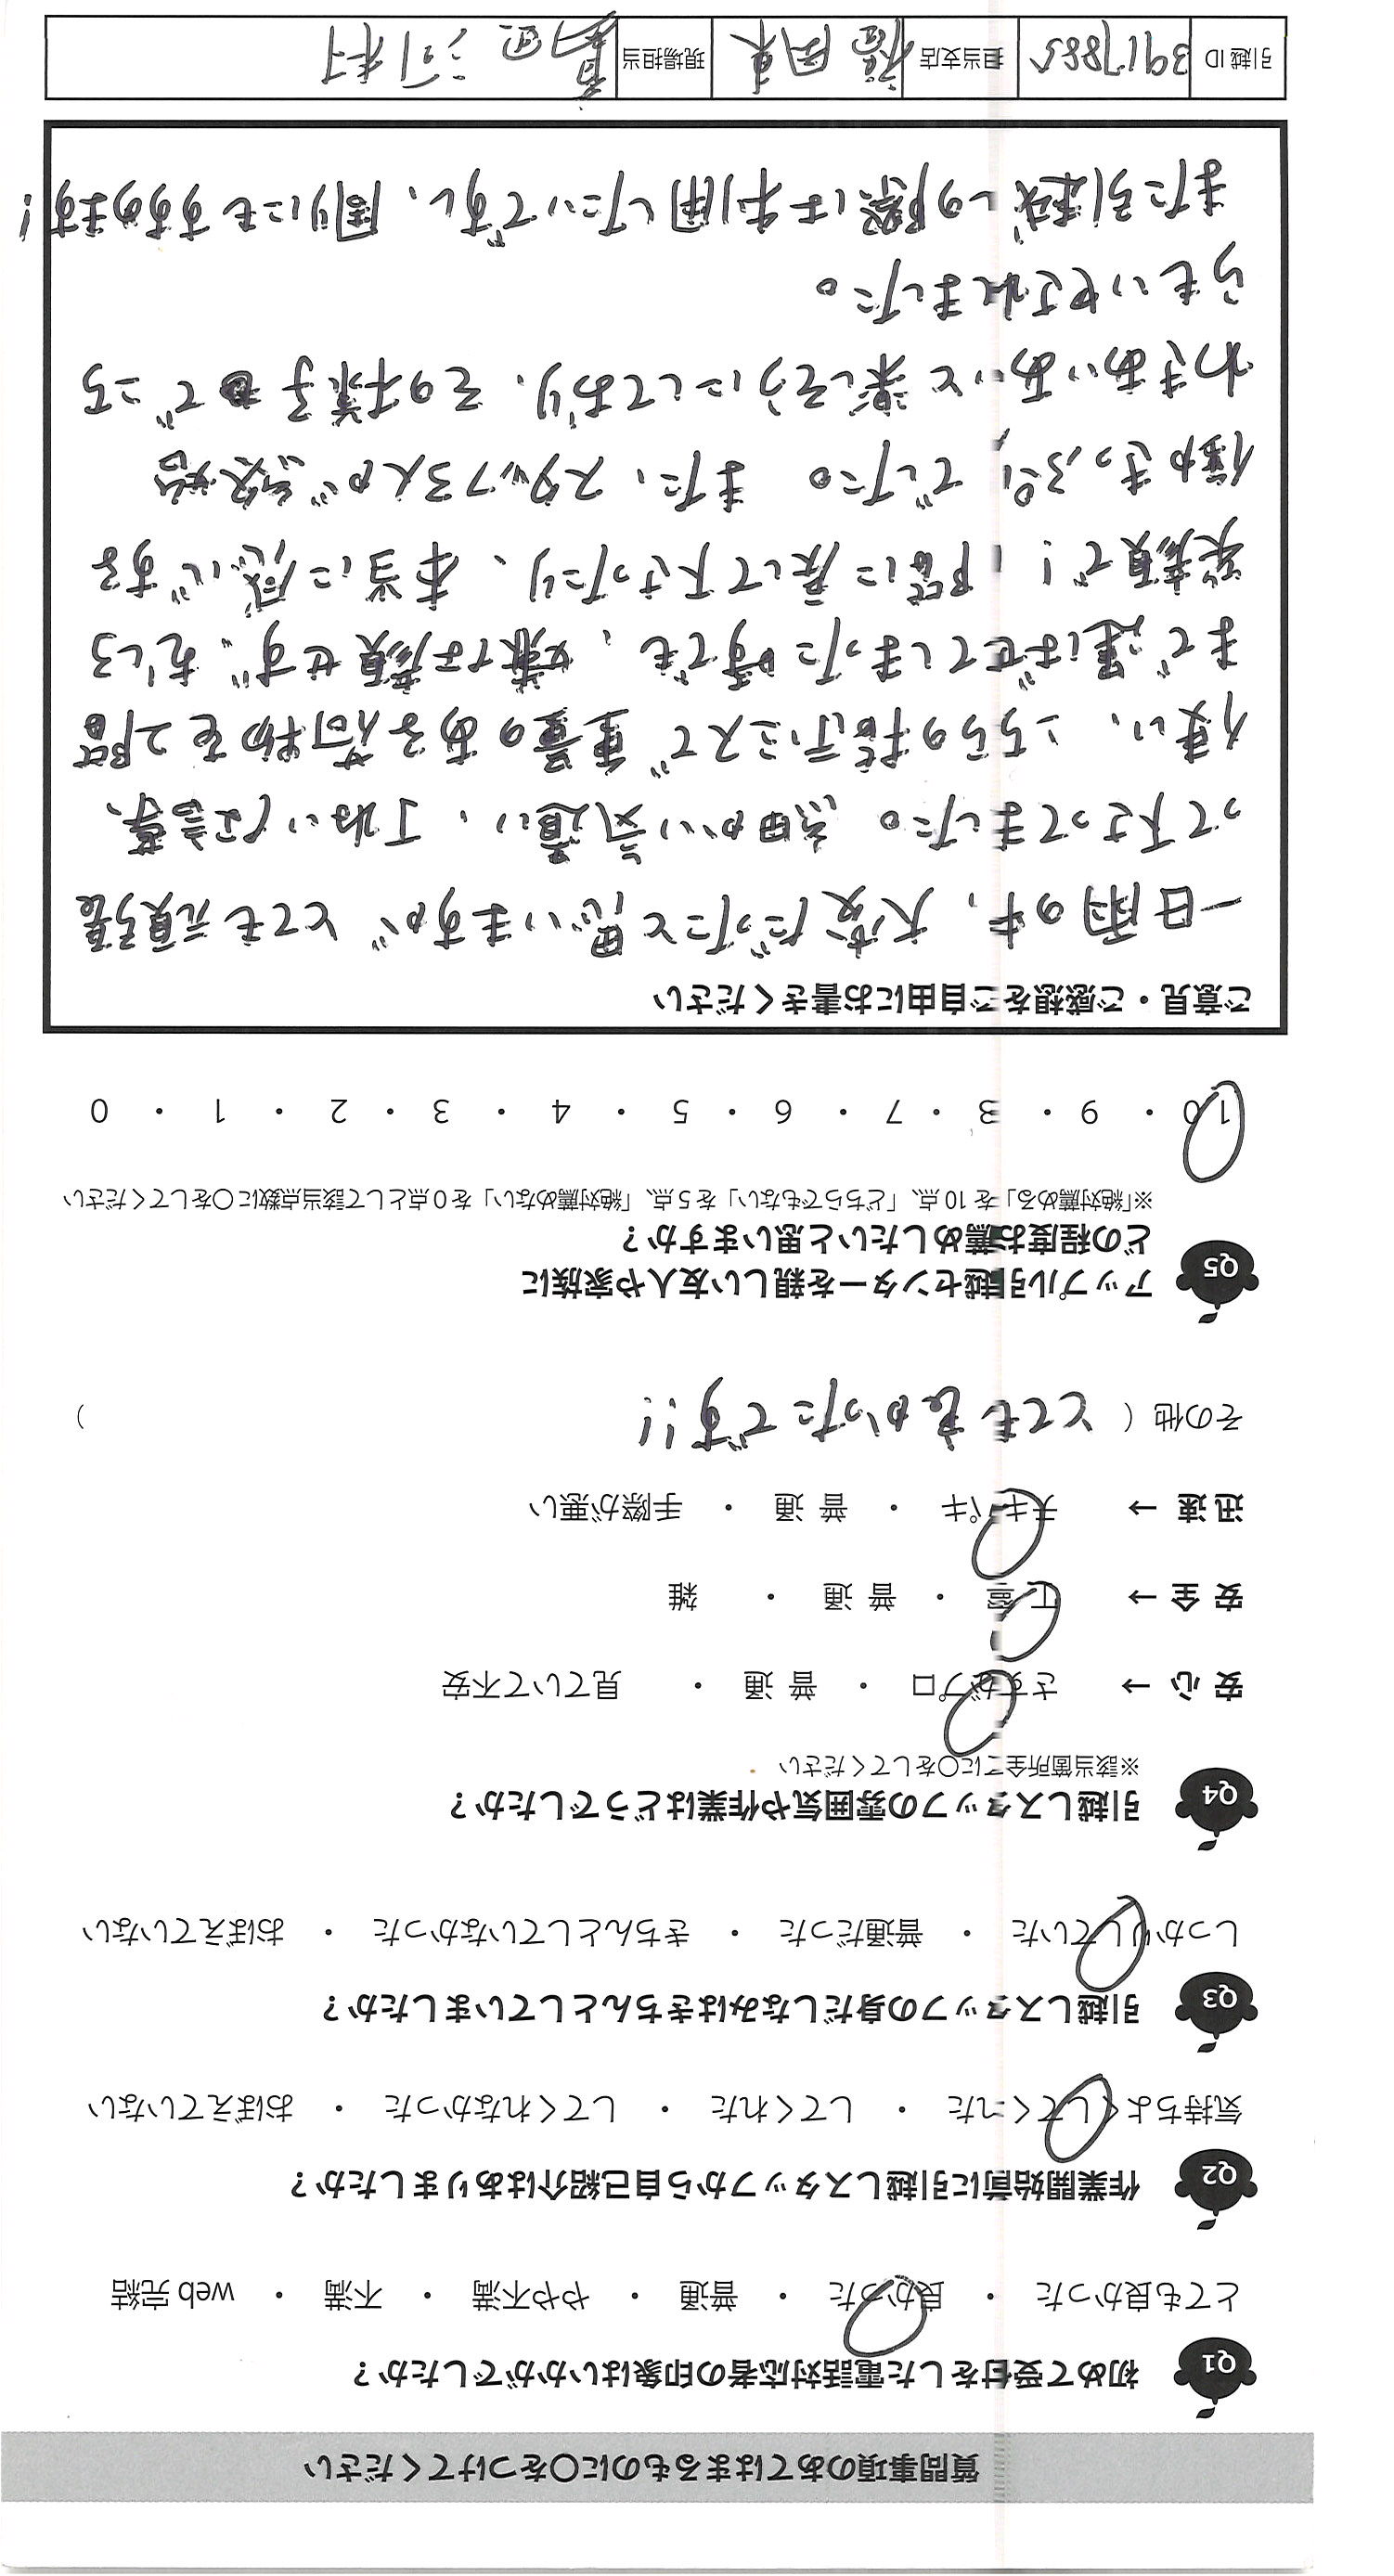 質問事項のあてはまるものに〇をつけてください
Q1 初めて受付をした電話対応者の印象はいかがでしたか？
とても良かった ・ 良かった ・ 普通 ・ やや不満 ・ 不満 ・ web完結
Q2 作業開始前に引越しスタッフから自己紹介はありましたか？
気持ちよくしてくれた ・ してくれた ・ してくれなかった ・ おぼえていない
Q3 引越しスタッフの身だしなみはきちんとしていましたか？
しっかりしていた ・ 普通だった ・ きちんとしていなかった ・ おぼえていない
Q4 引越しスタッフの雰囲気や作業はどうでしたか？
※該当箇所全てに〇をしてください
安心 → さすがプロ ・ 普通 ・ 見ていて不安
安全 → 丁寧 ・ 普通 ・ 雑
迅速 → テキパキ ・ 普通 ・ 手際が悪い
その他（ とても良かったです!! ）
Q5 アップル引越センターを親しい友人や家族に
どの程度お薦めしたいと思いますか？
※「絶対薦める」を10点、「どちらでもない」を5点、「絶対薦めない」を0点として該当点数に〇をしてください
10 ・ 9 ・ 8 ・ 7 ・ 6 ・ 5 ・ 4 ・ 3 ・ 2 ・ 1 ・ 0
ご意見・ご感想をご自由にお書きください
一日雨の中、大変だったと思いますがとても頑張
って下さってました。細かい気遣い、丁ねいな言葉
使い、こちらの指示ミスで重量のある荷物を2階
まで運ばせてしまった時でも、嫌な顔せず、むしろ
笑顔で！1階に戻して下さったり、本当に感心する
働きっぷりでした。また、スタッフ3人が終始
わきあいあいと楽しそうにしており、その様子までこち
らもいやされました。
また引越しの際は利用したいですし、周りにもすすめます！
引越ID 3917885 担当支店 福岡東 現場担当 河村